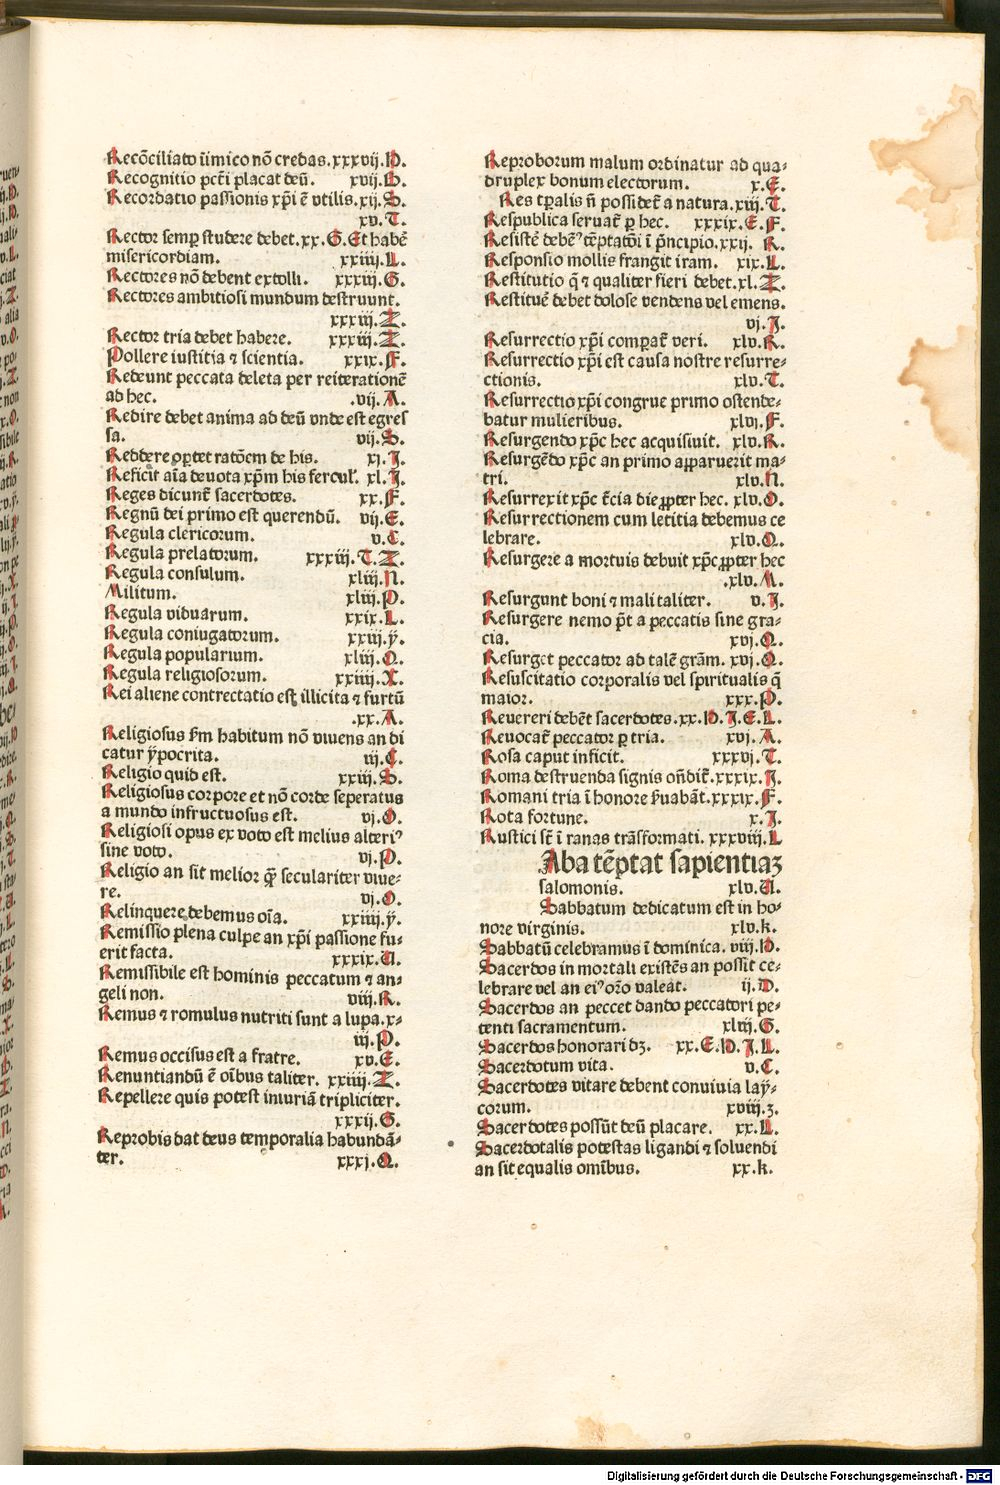 Recōciliato iīmico nō credas.xxxvij.D.
Recognitio pctī placat deū. xvij.B.
Recordatio passionis xp̄i ē vtilis.xij.S.
xv.T.
Rector semꝑ studere debet.xx.G.Et habē
misericordiam. xxiiij.L.
Rectores nō debent extolli. xxxiij.G.
Rectores ambitiosi mundum destruunt.
xxxiij.Z.
Rector tria debet habere. xxxiij.Z.
Pollere iustitia ⁊ scientia. xxix.F.
Redeunt peccata deleta per reiterationē
ad hec. .vij.A.
Redire debet anima ad deū vnde est egres
sa. vij.S.
Reddere oꝑtet ratōem de his. xj.J.
Reficit aīa deuota xp̄m his fercul'. xl.J.
Reges dicunt̄ sacerdotes. xx.F.
Regnū dei primo est querendū. vij.E.
Regula clericorum. v.C.
Regula prelatorum. xxxiij.T.Z.
Regula consulum. xliij.N.
Militum. xliij.P.
Regula viduarum. xxix.L.
Regula coniugatorum. xxiij.ẏ.
Regula popularium. xliij.O.
Regula religiosorum. xxiiij.X.
Rei aliene contrectatio est illicita ⁊ furtū
.xx.A.
Religiosus ẜm habitum nō viuens an di
catur ẏpocrita. iij.C.
Religio quid est. xxiij.S.
Religiosus corpore et nō corde seperatus
a mundo infructuosus est. vj.O.
Religiosi opus ex voto est melius alteriꝰ
sine voto. vj.P.
Religio an sit melior q̄ᷓ seculariter viue⸗
re. vj.O.
Relinquere debemus oīa. xxiij.ẏ.
Remissio plena culpe an xp̄i passione fu⸗
erit facta. xxxix.U.
Remissibile est hominis peccatum ⁊ an⸗
geli non. viij.R.
Remus ⁊ romulus nutriti sunt a lupa.x⸗
iij.P.
Remus occisus est a fratre. xv.E.
Renuntiandū ē oībus taliter. xxiiij.Z.
Repellere quis potest iniuriā tripliciter.
xxxij.G.
Reprobis dat deus temporalia habundā⸗
ter. xxxj.Q.
Reproborum malum ordinatur ad qua⸗
druplex bonum electorum. x.E.
Res tꝑalis n̄ possidet̄ a natura.xiij.T.
Respublica seruat̄ ꝑ hec. xxxix.E.F.
Resistē debēꝰ tēptatōi ī p̄ncipio.xxij. R.
Responsio mollis frangit iram. xix.L.
Restitutio q̄ ⁊ qualiter fieri debet.xl.Z.
Restituē debet dolose vendens vel emens.
vj.J.
Resurrectio xp̄i comꝑat̄ veri. xlv.R.
Resurrectio xp̄i est causa nostre resurre⸗
ctionis. xlv.T.
Resurrectio xp̄i congrue primo ostende⸗
batur mulieribus. xlvj.F.
Resurgendo xp̄c hec acquisiuit. xlv.R.
Resurgēdo xp̄c an primo apparuerit ma⸗
tri. xlv.N.
Resurrexit xp̄c t̄cia die ꝓpter hec. xlv.O.
Resurrectionem cum letitia debemus ce
lebrare. xlv.Q.
Resurgere a mortuis debuit xp̄c ꝓpter hec
.xlv.M.
Resurgunt boni ⁊ mali taliter. v.J.
Resurgere nemo pōt a peccatis sine gra⸗
cia. xvj.Q.
Resurget peccator ad talē grām. xvj.Q.
Resuscitatio corporalis vel spiritualis q̄
maior. xxx.P.
Reuereri debēt sacerdotes.xx.D.J.E.L.
Reuocat̄ peccator ꝑ tria. xvj.A.
Rosa caput inficit. xxxvj.T.
Roma destruenda signis on̄dit̄.xxxix.J.
Romani tria ī honore ẜuabāt.xxxix.F.
Rota fortune. x.J.
Rustici st̄ ī ranas trāsformati. xxxviij.L
Aba tēptat sapientiaꝫ
salomonis. xlv.U.
Sabbatum dedicatum est in ho⸗
nore virginis. xlv.k.
Sabbatū celebramus ī dominica. viij.D.
Sacerdos in mortali existēs an possit ce⸗
lebrare vel an eiꝰ or̄o valeat. ij.D.
Sacerdos an peccet dando peccatori pe⸗
tenti sacramentum. xlvij.G.
Sacerdos honorari dꝫ. xx.E.D.J.L.
Sacerdotum vita. v.C.
Sacerdotes vitare debent conuiuia laẏ⸗
corum. xviij.ꝫ.
Sacerdotes possūt deū placare. xx.L.
Sacerdotalis potestas ligandi ⁊ soluendi
an sit equalis omībus. xx.k.
Digitalisierung gefördert durch die Deutsche Forschungsgemeinschaft - DFG